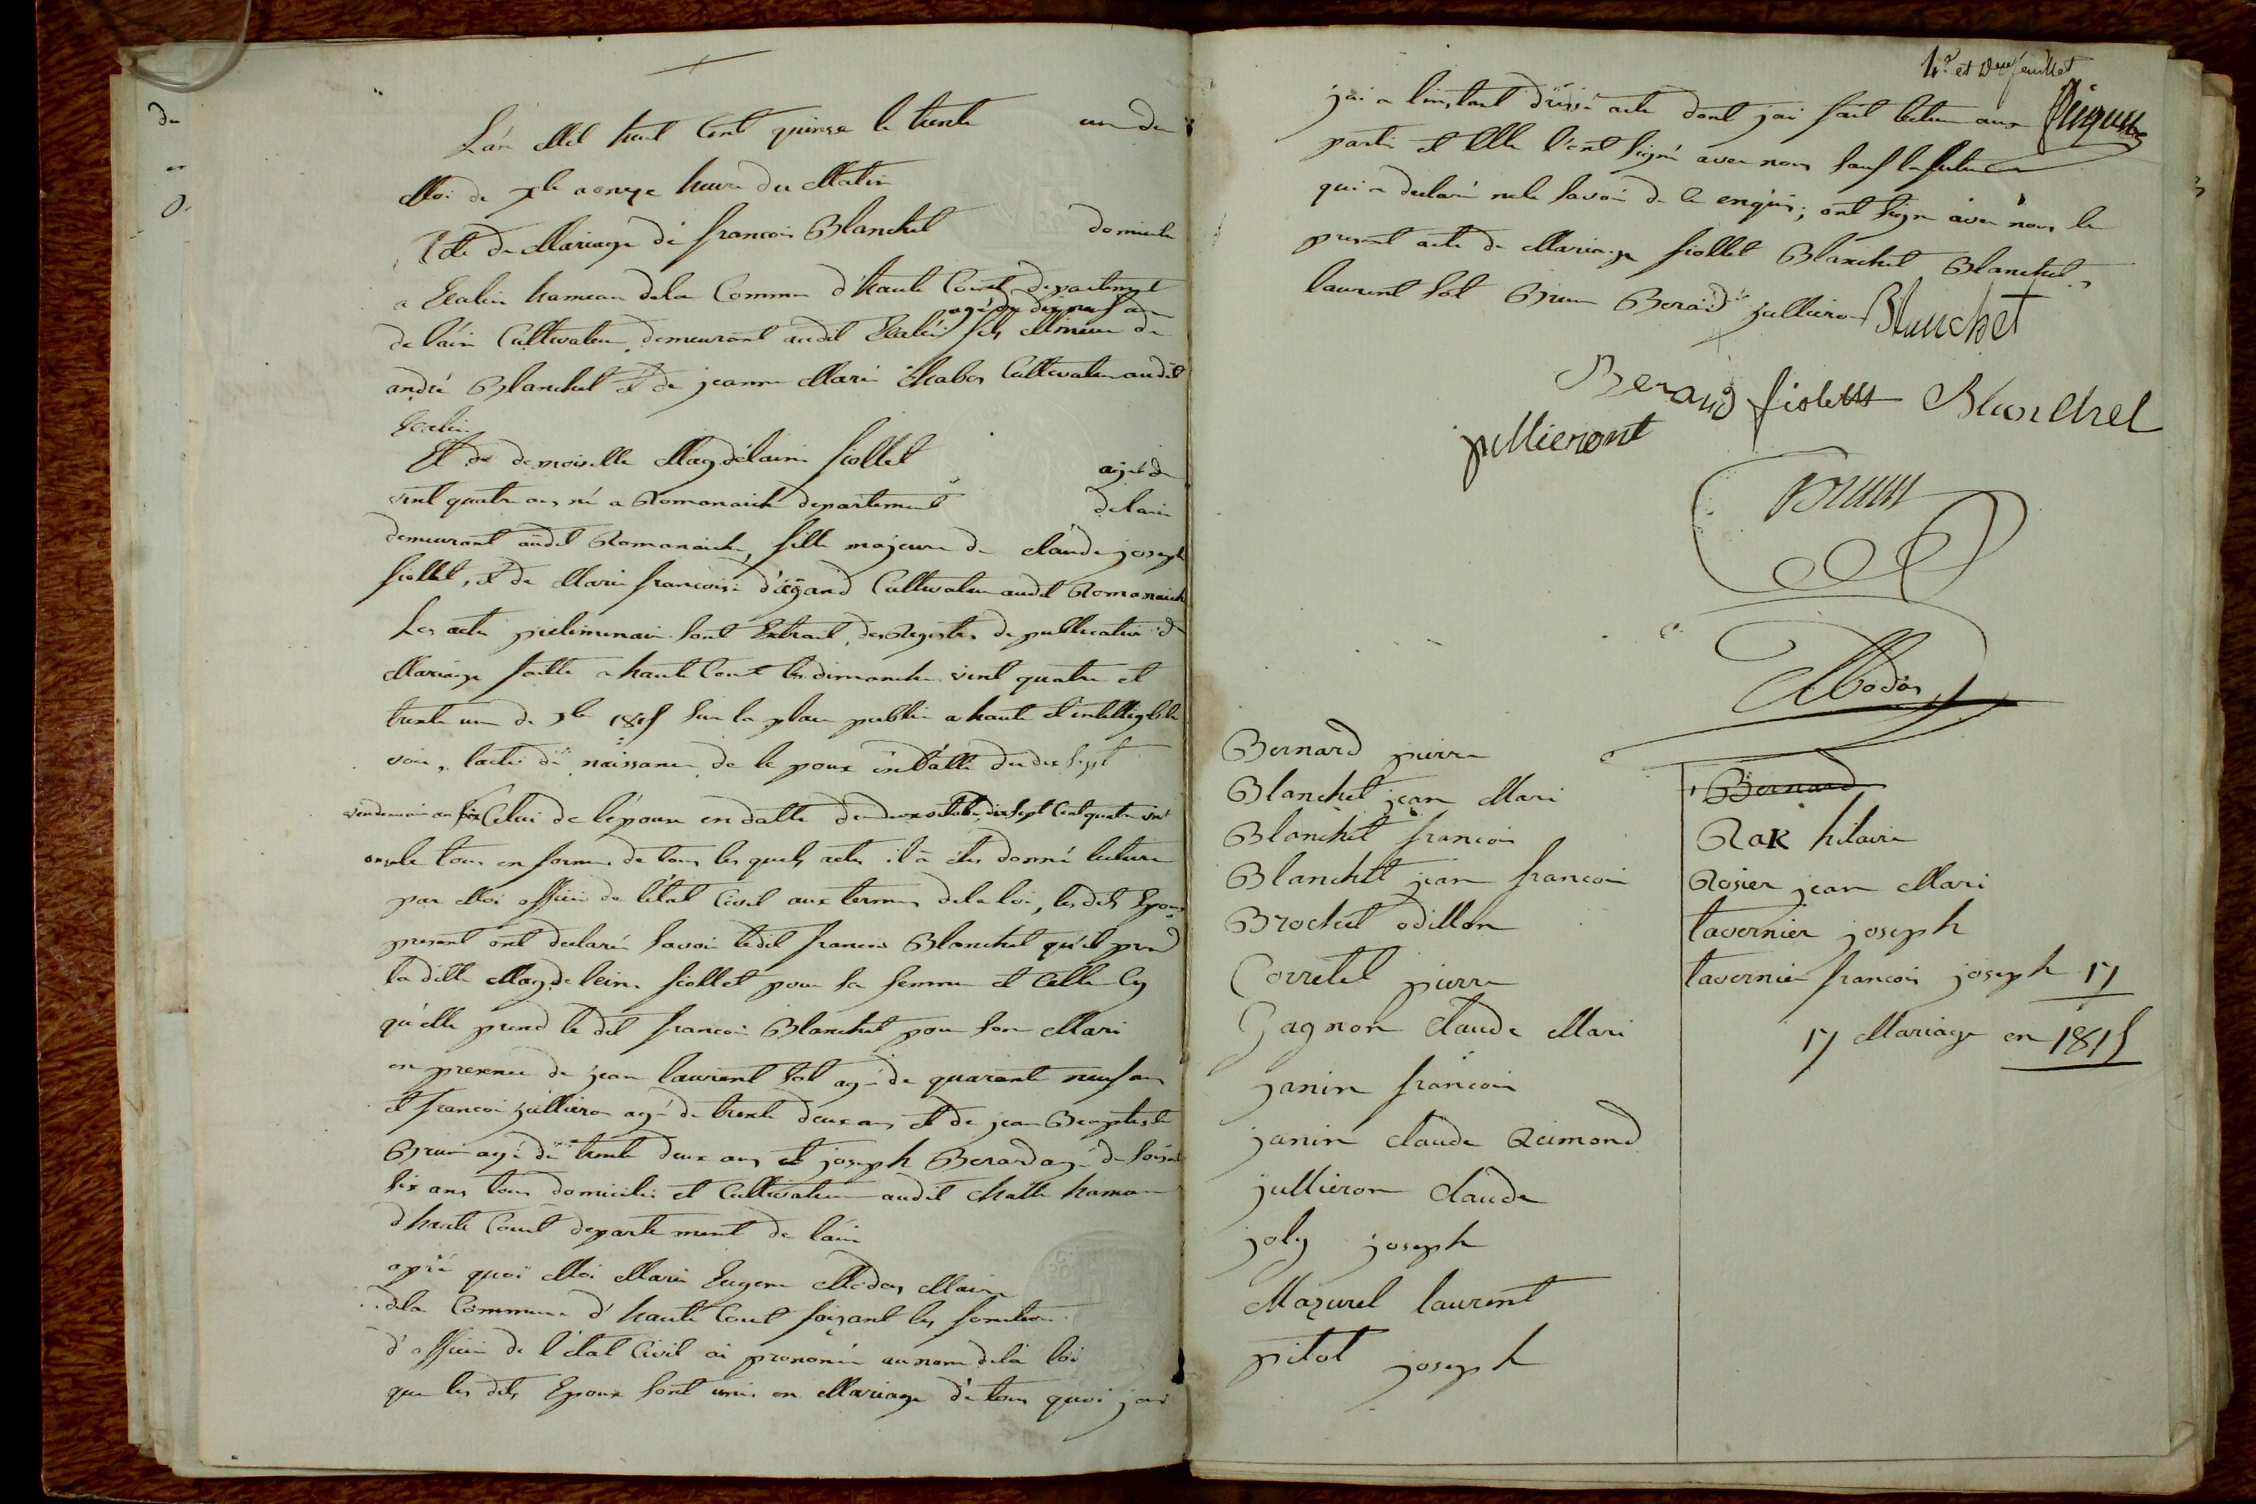 du
L'an Mil huit Cent quinse le trente un du
Moi de Xbr a onze heure du Matin
Acte de Mariage de françois Blanchet domicilie
a Eralin hameau dela Commun d'haute Court departement
agé de dix neuf an
de l'ain Cultivateur demeurant audit Eralin fils Mineur de
andré Blanchet et de jeanne Marie Chabos Cultivateur audit
Eralin
Et de demoiselle Magdelaine fiollet agé de
vint quatre ans né a Romanaiche departement delain
demeurant audit Romanaiche, fille majeure de claude joseph
fiollet, et de Marie francoise d'égard Cultivateur audit Romanaiche
Les acte preliminair sont Extrait des Registes de publication de
Mariage faitte a haute Court les dimanche vint quatre et
trente un de Xbr 1815 sur la place publie a haute et intelligible
voie, lacte de naissance de le poux en datte du dix sept
vendemiair an six Celui de l'épouse en datte du deux octobre dix sept Cent quatre vint
onze le tous en forme de tous les quels actes il a étés donné lecture
par Moi officier de létat Civil aux termes dela loi, les dits Epoux
present ont declaré Savoir ledit francois Blanchet qu'il prend
la ditte Magdeleine fiollet pour sa femme et Celle Cy
qu'elle prend le dit francois Blanchet pour son Mari
en presence de jean laurent Sol agé de quarante neuf ans
et francoi jullieron agé de trente deux ans et de jean Baaptiste
Brun agé de trente deux ans et joseph Berard agé de soisante
six ans tous domicilie et Cultivateur audit Challe hamau
d'haute Court departement de lain
apré quoi Moi Marie Eugene Modas Maire
dela Commune d'haute Court faisant les fonction
d'officier de l'état Civil ai prononcé aunom dela loi
que les dits Epoux sont unis en Mariage de tous quoi jai
4e et Der feuillet
jai a linstant dressé acte dont jai fait lecture aux
partie et Elle l'ont signé avec nous sauf la future
qui a declaré nele savoir de ce enquis; ont signe avec nous le
present acte de Mariage fiollet Blanchet Blanchet
laurent Sol Brun Berard jullieron Blanchet
Beraud fiolett Blanchet
jullieront
Brun
Modas
Bernard pierre
Blanchet jean Mari
Blanchet francois
Blanchet jean francois
Brochet odillon
Corretel pierre
Gagnon claude Mari
janin francois
janin claude Reimond
jullieron claude
joly joseph
Mazurel laurent
pitot joseph
Bernard
Rak hilaire
Rosier jean Mari
tavernier joseph
tavernier francois joseph 17
17 Mariage en 1815